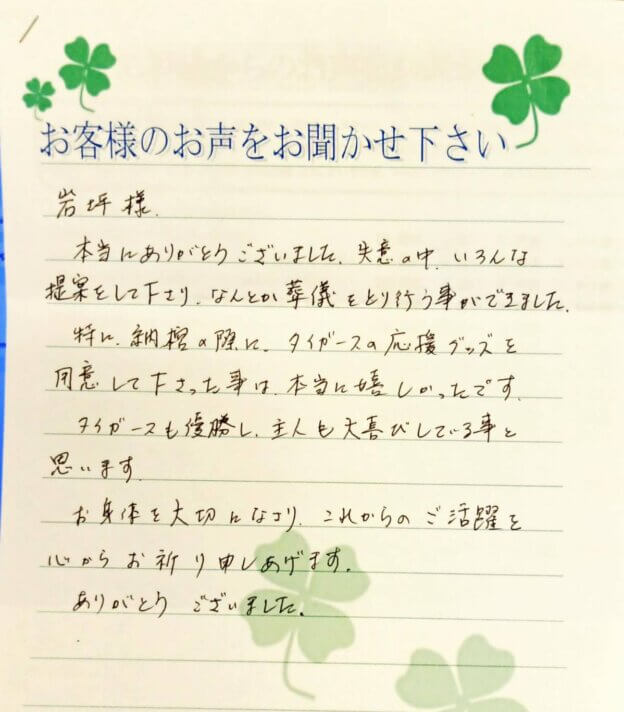 お客様のお声をお聞かせ下さい
岩坪様.
本当にありがとうございました. 失意の中. いろんな
提案をして下さり. なんとか葬儀をとり行う事ができました.
特に. 納棺の際に. タイガースの応援グッズを
用意して下さった事は. 本当に嬉しかったです.
タイガースも優勝し. 主人も大喜びしている事と
思います.
お身体を大切になさり. これからのご活躍を
心からお祈り申しあげます.
ありがとうございました.